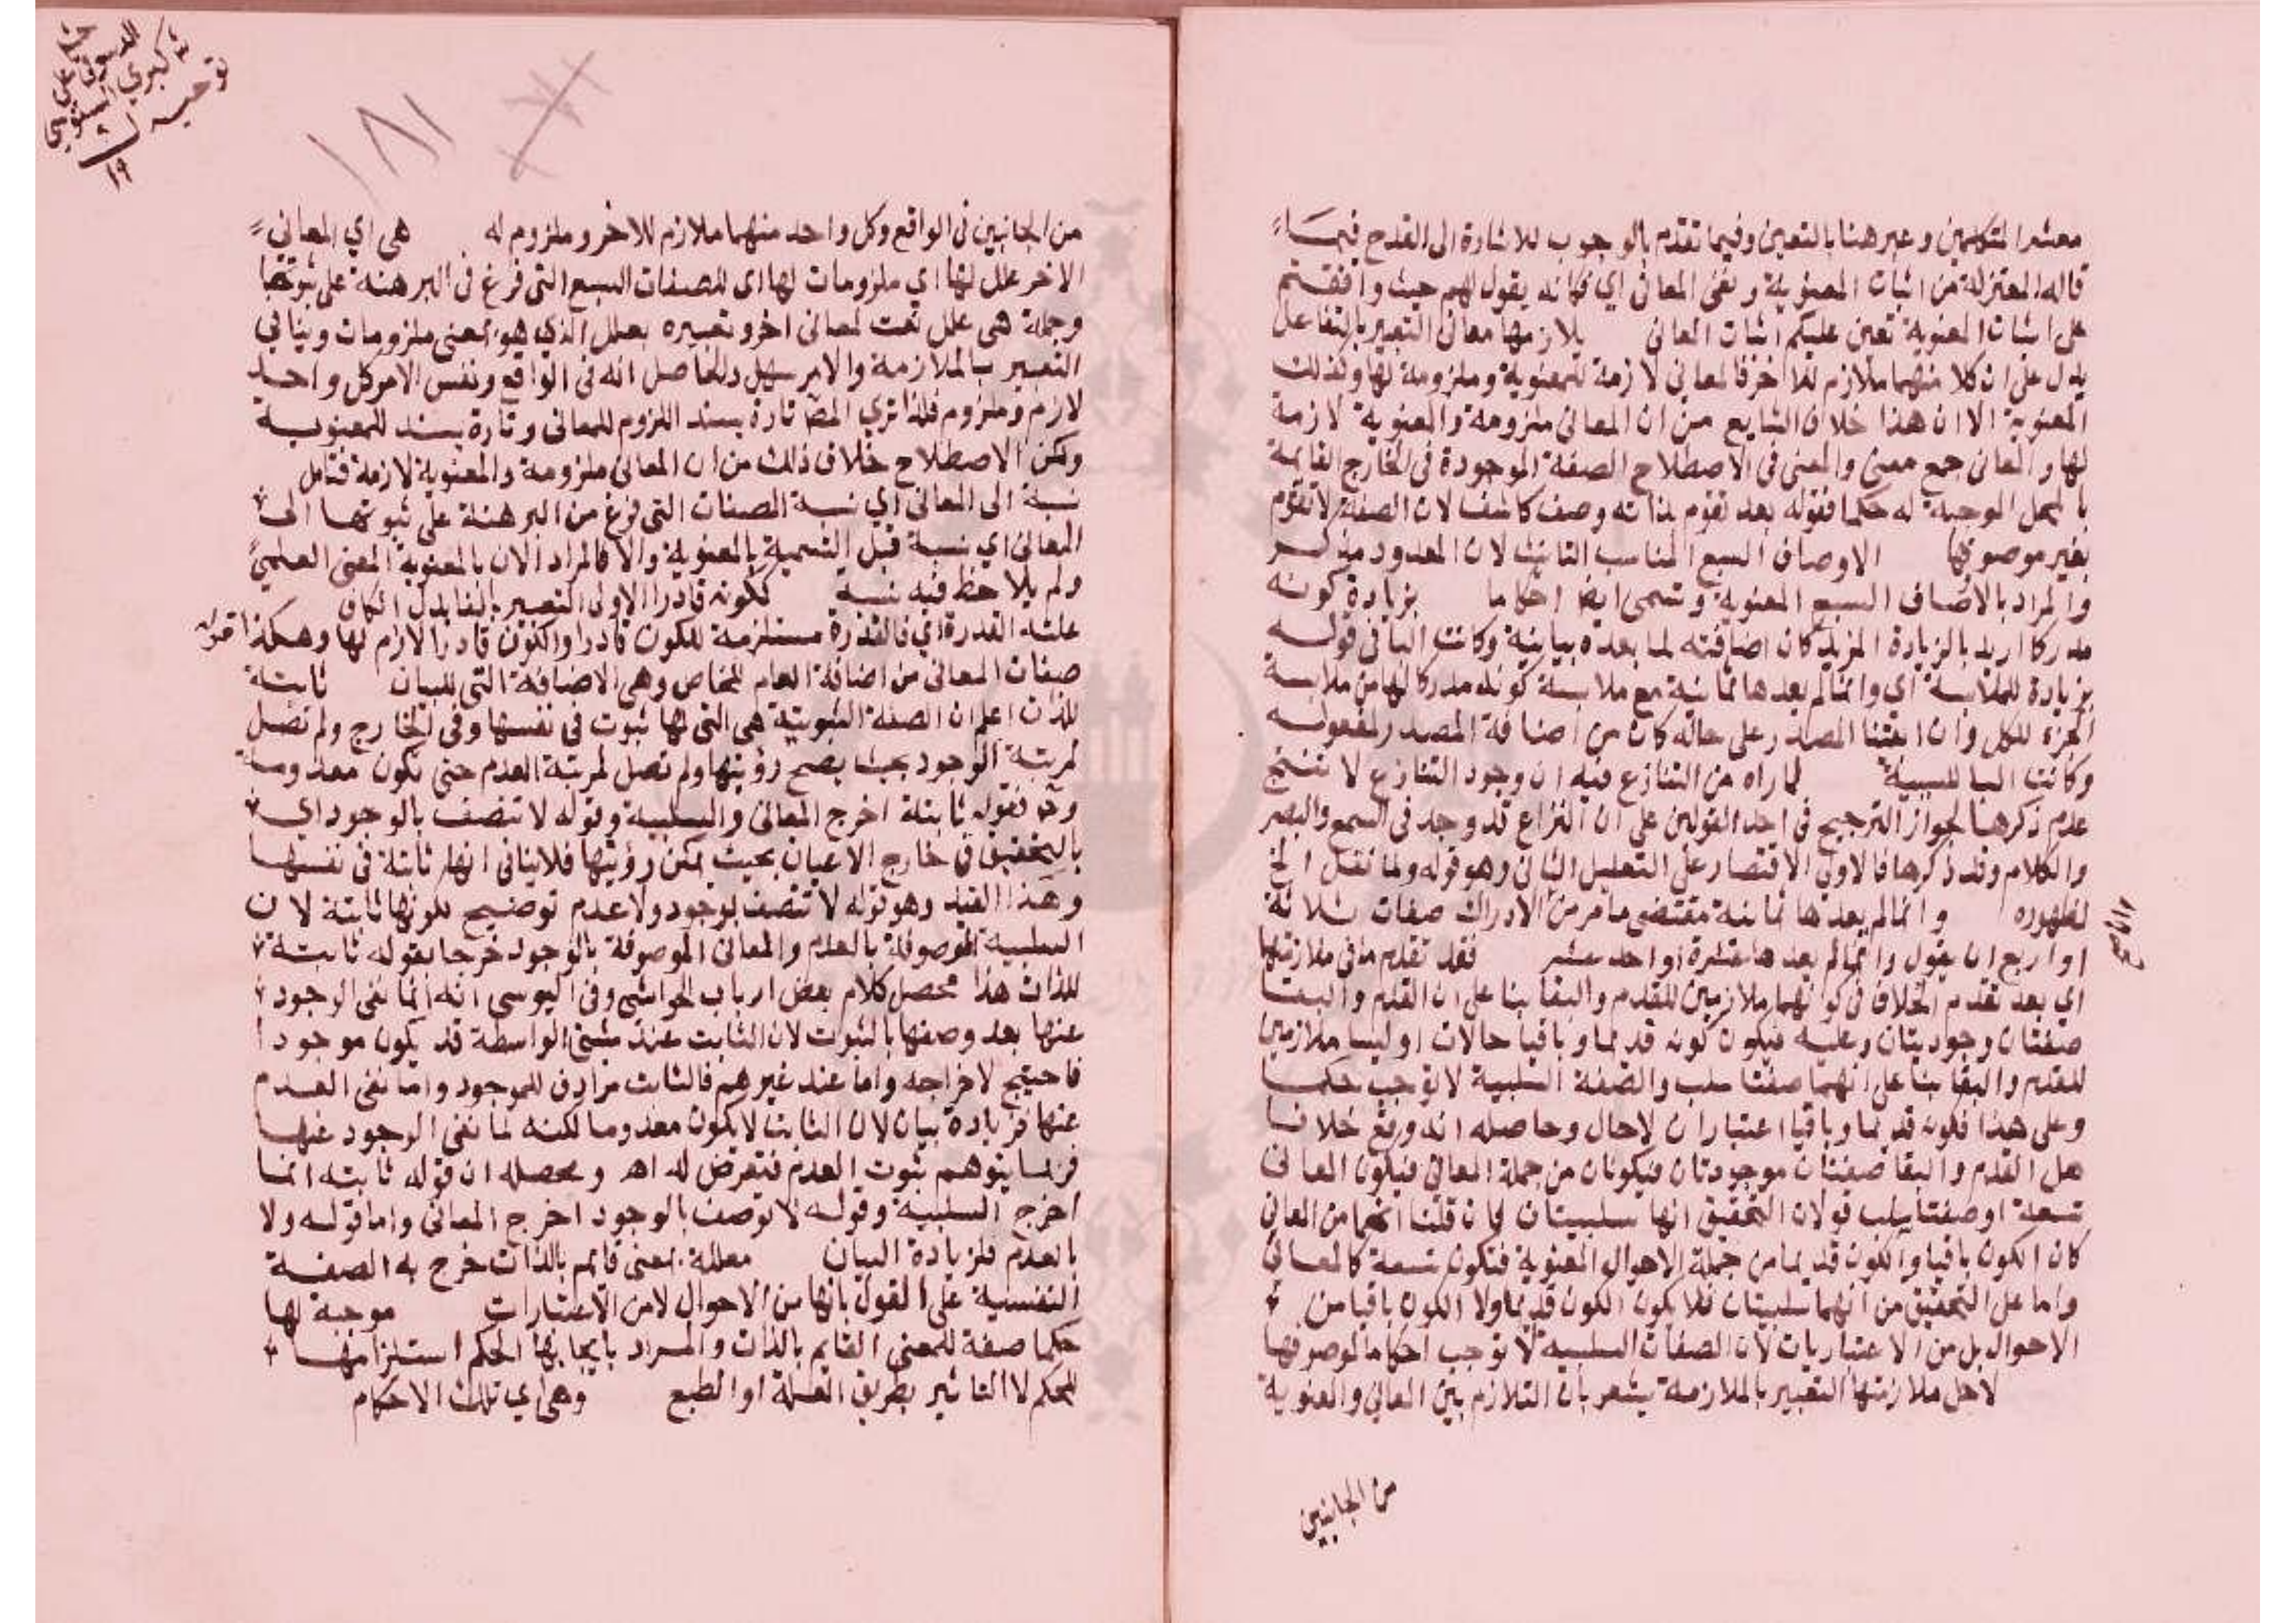 معشر المتكلمين وعبر هنا بالتعين وفيما تقدم بالوجوب للاشارة الى القدح فيما
قاله المعتزلة من اثبات المعنوية ونفي المعاني اي فكانه يقول لهم حيث وافقتم
على اثبات المعنوية تعين عليكم اثبات المعاني يلازمها معاني التعبير بالتفاعل
يدل على ان كلا منهما ملازم للاخر فالمعاني لازمة للمعنوية وملزومة لها وكذلك
المعنوية الا ان هذا خلاف الشايع من ان المعاني ملزومة والمعنوية لازمة
لها والمعاني جمع معنى والمعنى في الاصطلاح الصفة الموجودة في الخارج القايمة
بالمحل الموجبة له حكما فقوله بعد تقوم بذاته وصف كاشف لان الصفة لا تقوم
بغير موصوفها الاوصاف السبع المناسب التانيث لان المعدود مذكر
والمراد بالاوصاف السبع المعنوية وتسمى ايضا احكاما بزيادة كونه
مدركا اريد بالزيادة المزيد كان اضافته لما بعده بيانية وكانت البا في قوله
بزيادة للملابسة اي وانما لم يعدها ثمانية مع ملابسة كونه مدركا لها من ملابسة
الجزء للكل وان ابقينا المصدر على حاله كان من اضافة المصدر لمفعوله
وكانت البا للسببية لما راه من التنازع فيه ان وجود التنازع لا ينتج
عدم ذكرها لجواز الترجيح في احد القولين على ان النزاع قد وجد في السمع والبصر
والكلام وقد ذكرها فالاولى الاقتصار على التعليل الثاني وهو قوله ولما نقل الخ
لظهوره وانما لم يعدها ثمانية مقتضى ما مر من الادراك صفات ثلاثة
او اربع ان يقول وانما لم يعدها عشرة او احد عشر فقد تقدم ما في ملازمتها
اي بعد تقدم الخلاف في كونهما ملازمين للقدم والبقا بنا على ان القدم والبقا
صفتان وجوديتان وعليه فيكون كونه قديما وباقيا حالات اوليسا ملازمين
للقدم والبقا بنا على انهما صفتا سلب والصفة السلبية لا توجب حكما
وعلى هذا فكونه قديما وباقيا اعتباران لا حال وحاصله انه وقع خلاف
هل القدم والبقا صفتان موجودتان فيكونان من جملة المعاني فيكون المعاني
تسعة او صفتا سلب قولان التحقيق انها سلبيتان فان قلنا انهما من المعاني
كان الكون باقيا والكون قديما من جملة الاحوال المعنوية فتكون تسعة كالمعاني
واما على التحقيق من انهما سلبيتان فلا يكون الكون قديما ولا الكون باقيا من
الاحوال بل من الاعتباريات لان الصفات السلبية لا توجب احكاما لموصوفها
لاجل ملازمتها التعبير بالملازمة يشعر بان التلازم بين المعاني والمعنوية
من الجانبين
١٨١
من الجانبين في الواقع وكل واحد منهما ملازم للاخر وملزوم له هي اي المعاني
الاخر علل لها اي ملزومات لها اي للصفات السبع التي فرغ في البرهنة على ثبوتها
وجملة هي علل نعت لمعاني اخر وتعبيره بعلل الذي هو بمعنى ملزومات وينافي
التعبير بالملازمة والامر سهل والحاصل انه في الواقع ونفس الامر كل واحد
لازم وملزوم فلذا تري المص تارة يسند اللزوم للمعاني وتارة يسند للمعنوية
ولكن الاصطلاح خلاف ذلك من ان المعاني ملزومة والمعنوية لازمة فتامل
نسبة الى المعاني اي نسبة الصفات التي فرغ من البرهنة على ثبوتها الى
المعاني اي نسبة قبل التسمية بالمعنوية والا فالمراد الان بالمعنوية المعنى العلمي
ولم يلاحظ فيه نسبة ككونه قادرا الاولى التعبير بالفا بدل الكاف
علته القدرة اي فالقدرة مستلزمة للكون قادرا والكون قادرا لازم لها وهكذا قوله
صفات المعاني من اضافة العام للخاص وهي الاضافة التي للبيان ثابتة
للذات اعلم ان الصفة الثبوتية هي التي لها ثبوت في نفسها وفي الخارج ولم تصل
لمرتبة الوجود بحيث يصح رؤيتها ولم تصل لمرتبة العدم حتى تكون معدومة
وح فقوله ثابتة اخرج المعاني والسلبية وقوله لا تتصف بالوجود اي
بالتحقيق في خارج الاعيان بحيث يمكن رؤيتها فلا ينافي انها ثابتة في نفسها
وهذا القيد وهو قوله لا تتصف بوجود ولا عدم توضيح لكونها ثابتة لان
السلبية الموصوفة بالعدم والمعاني الموصوفة بالوجود خرجا بقوله ثابتة
للذات هذا محصل كلام بعض ارباب الحواشي وفي اليوسي انه انما نفى الوجود
عنها بعد وصفها بالثبوت لان الثابت عند مثبتي الواسطة قد يكون موجودا
فاحتيج لاخراجه واما عند غيرهم فالثابت مرادف للموجود واما نفى العدم
عنها فزيادة بيان لان الثابت لا يكون معدوما لكنه لما نفى الوجود عنها
فربما يتوهم ثبوت العدم فتعرض له اه ومحصله ان قوله ثابتة انما
اخرج السلبية وقوله لا توصف بالوجود اخرج المعاني واما قوله ولا
بالعدم فلزيادة البيان معللة بمعنى قايم بالذات خرج به الصفة
النفسية على القول بانها من الاحوال لا من الاعتبارات موجبة لها
حكما صفة للمعنى القايم بالذات والمراد بايجابها الحكم استلزامها
للحكم لا التاثير بطريق العلة او الطبع وهي اي تلك الاحكام